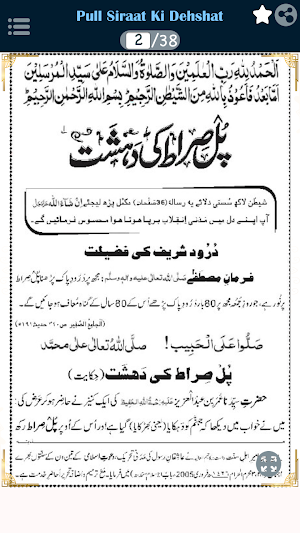 Pull Siraat Ki Dehshat
2/38
اَلْحَمْدُ لِلّٰهِ رَبِّ الْعٰلَمِيْنَ وَالصَّلٰوةُ وَالسَّلَامُ عَلٰى سَيِّدِ الْمُرْسَلِيْنَ
اَمَّا بَعْدُ فَاَعُوْذُ بِاللّٰهِ مِنَ الشَّيْطٰنِ الرَّجِيْمِ بِسْمِ اللّٰهِ الرَّحْمٰنِ الرَّحِيْمِ
پُلْ صِراط کی دَہشت
شیطٰن لاکھ سُستی دلائے یہ رسالہ (36صفحات) مکمَّل پڑھ لیجئے اِنْ شَآءَ اللہ
آپ اپنے دل میں مَدَنی اِنقِلاب برپا ہوتا ہوا محسوس فرمائیں گے۔
دُرُود شریف کی فضیلت
فرمانِ مصطَفٰے صلَّی اللہ تعالٰی علیہ والہٖ وسلَّم: مجھ پر دُرُودِ پاک پڑھنا پُلْ صراط
پر نور ہے، جو روزِ جُمُعہ مجھ پر 80 بار دُرُودِ پاک پڑھے اُس کے 80 سال کے گناہ مُعاف ہو جائیں گے۔
صَلُّوا عَلَى الْحَبِيْب! صلَّى اللّٰهُ تعالٰى على محمَّد
پُلْ صِراط کی دَهشت (حکایت)
حضرتِ سیِّدُنا عمر بن عبدُ العزیز کی ایک کنیز نے حاضِر ہو کر عرض کی:
میں نے خواب میں دیکھا کہ جہنَّم کو دَہکایا (یعنی بھڑکایا) گیا ہے اور اُس کے اُوپر پُلْ صِراط رکھ